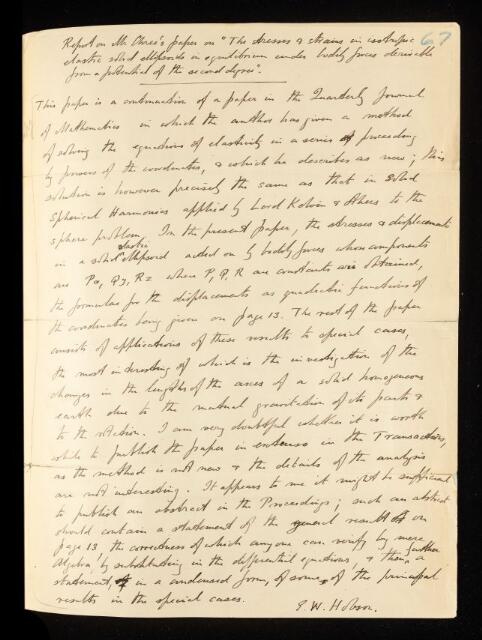 67
Report on Mr Chree's paper on "The stresses & strains in isotropic
elastic solid ellipsoids in equilibrium under bodily forces derivable
from a potential of the second degree".
This paper is a continuation of a paper in the Quarterly Journal
of Mathematics in which the author has given a method
of solving the equations of elasticity in a series of proceeding
by powers of the coordinates, & which he describes as new; this
solution is however precisely the same as that in Solid
Spherical Harmonics applied by Lord Kelvin & others to the
sphere problem. In the present paper, the stresses & displacements
in a solid elastic ellipsoid acted on by bodily forces whose components
are Px, Qy, Rz where P, Q, R are constants are obtained,
the formulae for the displacements as quadratic functions of
the coordinates being given on page 13. The rest of the paper
consists of applications of these results to special cases,
the most interesting of which is the investigation of the
changes in the lengths of the axes of a solid homogeneous
earth due to the mutual gravitation of its parts &
to the rotation. I am very doubtful whether it is worth
while to publish the paper in extenso in the Transactions,
as the method is not new & the details of the analysis
are not interesting. It appears to me it might be sufficient
to publish an abstract in the Proceedings; such an abstract
should contain a statement of the general result on
page 13, the correctness of which anyone can verify by mere
Algebra by substituting in the differential equations, & then a further
statement, in a condensed form, of some of the principal
results in the special cases.
E. W. Hobson.